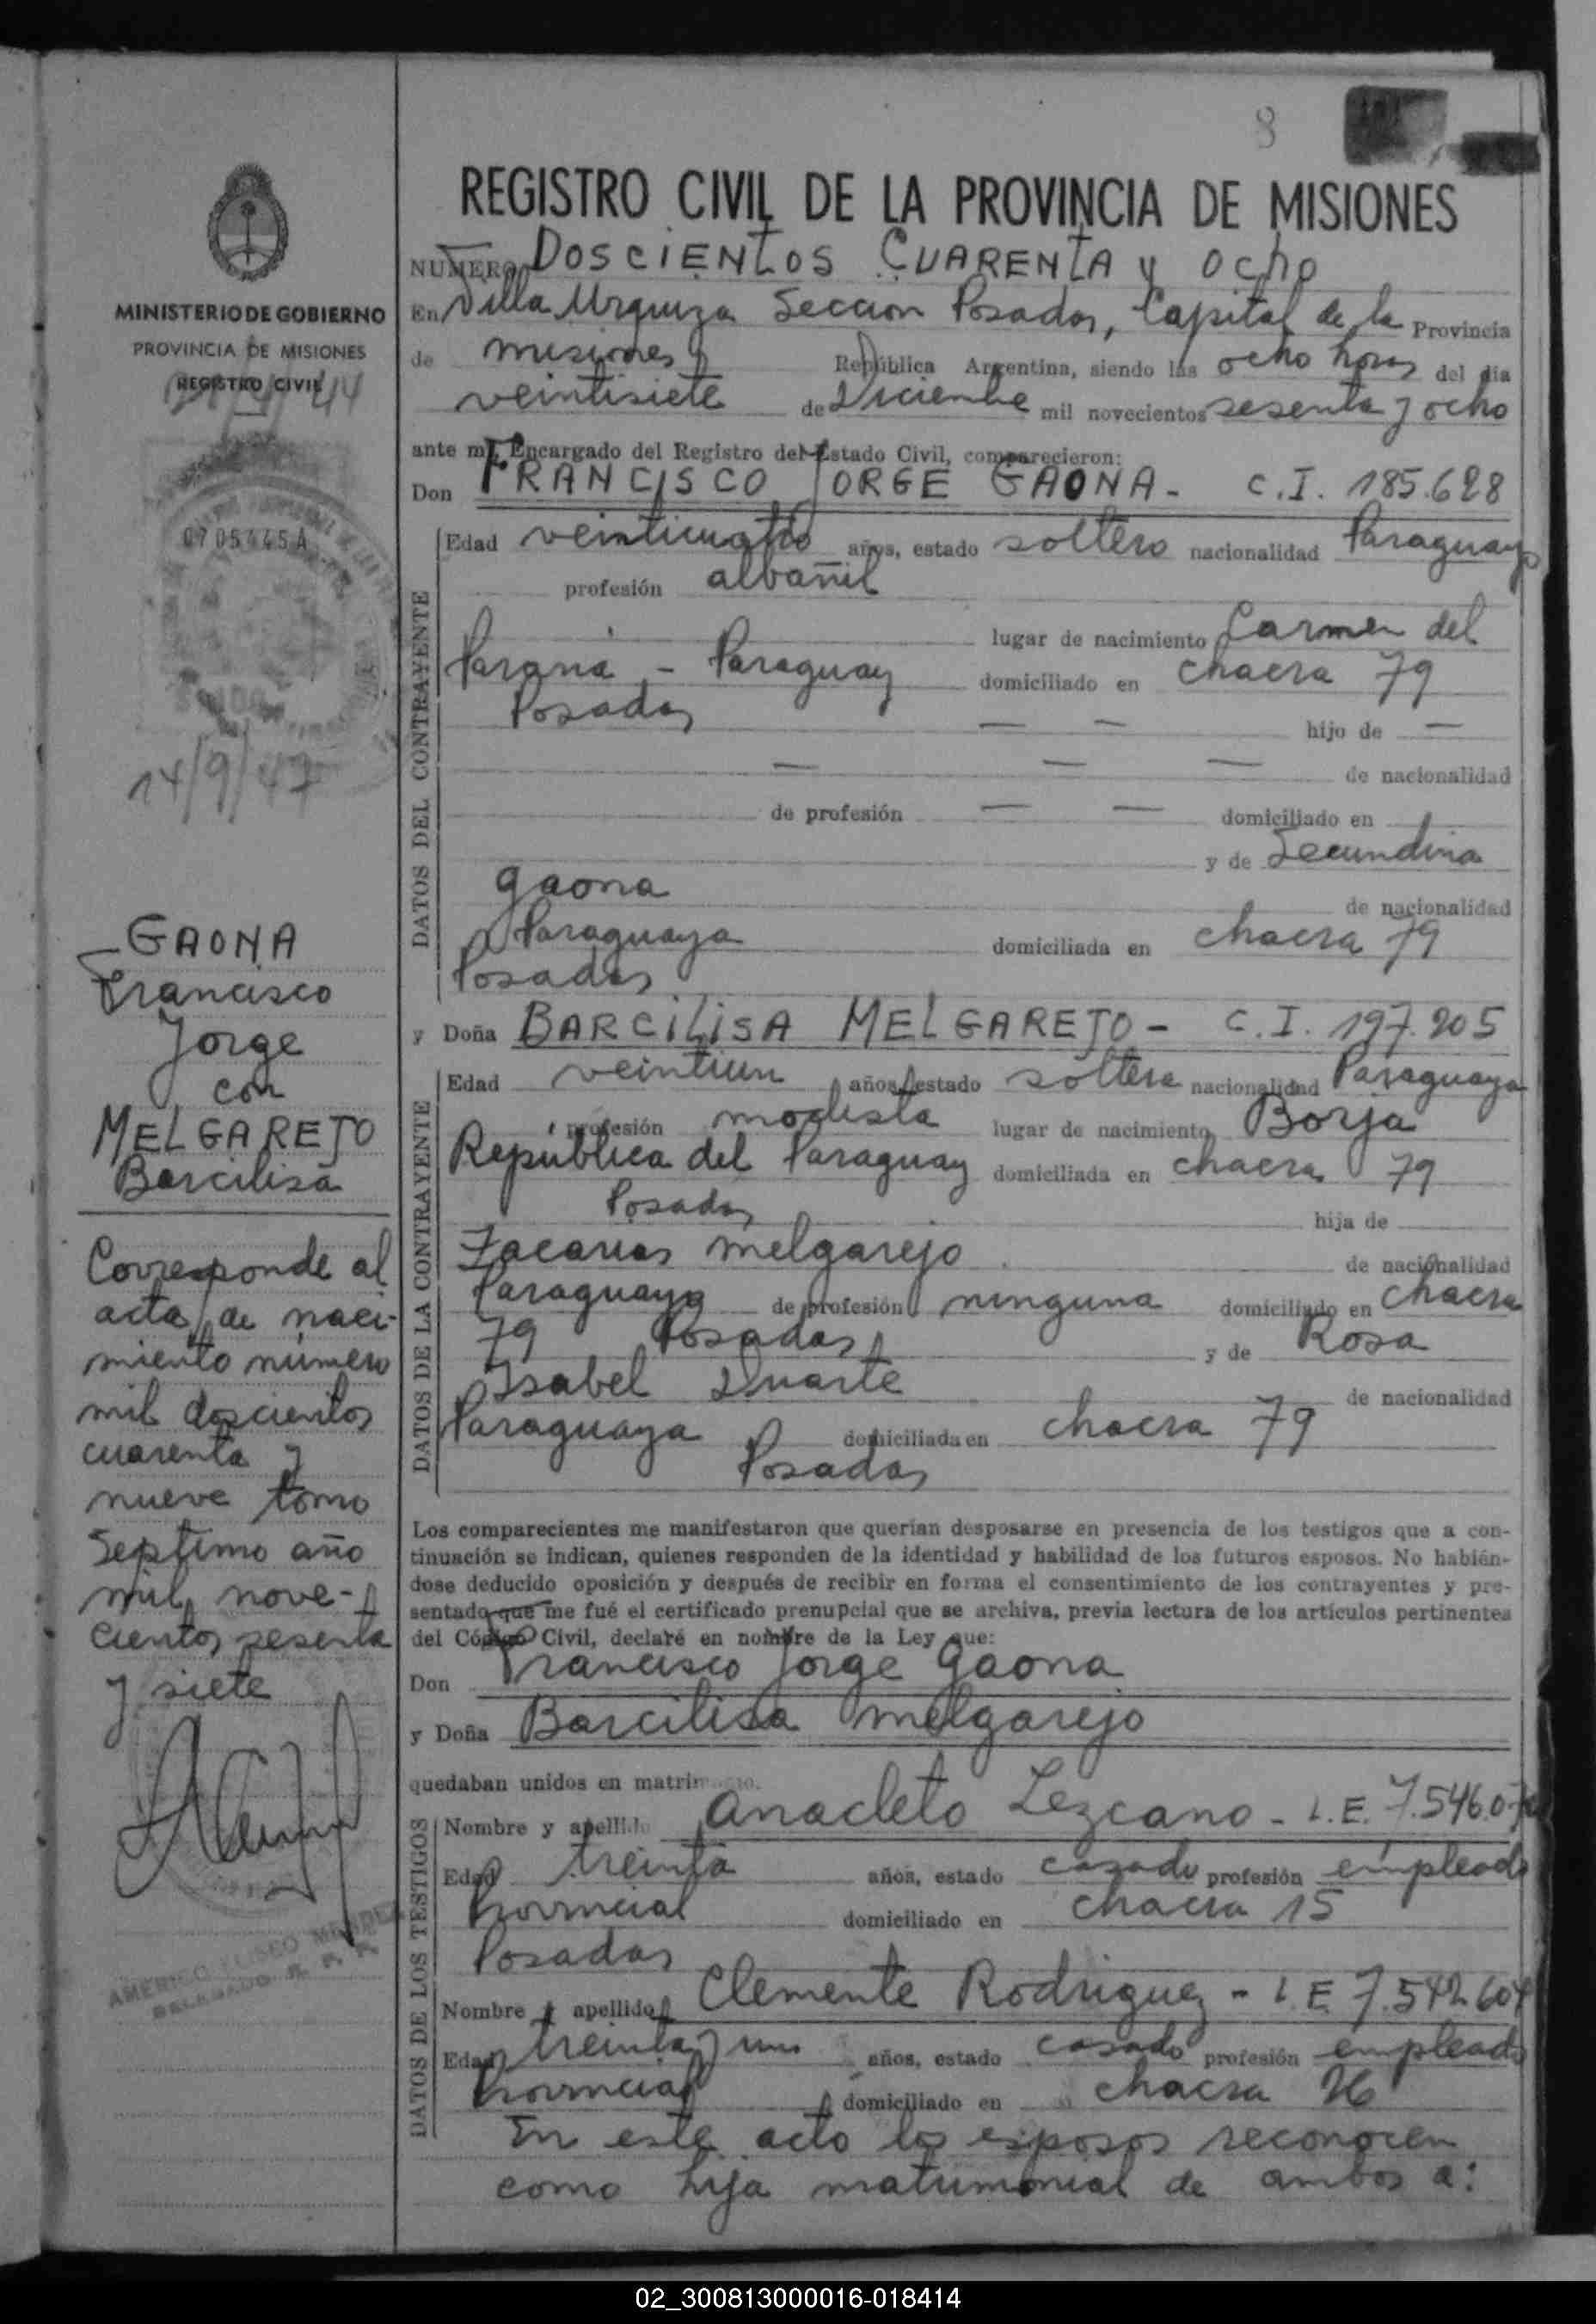 8
REGISTRO CIVIL DE LA PROVINCIA DE MISIONES
MINISTERIO DE GOBIERNO
PROVINCIA DE MISIONES
REGISTRO CIVIL
0705445A
14/9/47
GAONA
Francisco
Jorge
con
MELGAREJO
Barcilisa
Corresponde al
acta de naci-
miento número
mil doscientos
cuarenta y
nueve tomo
Septimo año
mil nove-
cientos sesenta
y siete
AMERICO ELISEO
NUMERO DOSCIENTOS CUARENTA y OCHO
En Villa Urquiza Seccion Posadas, Capital de la Provincia
de misiones República Argentina, siendo las ocho horas del día
veintisiete de Diciembre mil novecientos sesenta y ocho
ante mi, Encargado del Registro del Estado Civil, comparecieron:
Don FRANCISCO JORGE GAONA - C.I. 185.628
DATOS DEL CONTRAYENTE
Edad veinticuatro años, estado soltero nacionalidad Paraguayo
profesión albañil
lugar de nacimiento Carmen del
Parana - Paraguay domiciliado en chacra 79
Posadas — — hijo de —
— — — de nacionalidad
de profesión — — domiciliado en
y de Secundina
Gaona de nacionalidad
Paraguaya domiciliada en chacra 79
Posadas
y Doña BARCILISA MELGAREJO - C.I. 197.205
DATOS DE LA CONTRAYENTE
Edad veintiun años, estado soltera nacionalidad Paraguaya
profesión modista lugar de nacimiento Borja
República del Paraguay domiciliada en chacra 79
Posadas hija de
Zacarias melgarejo de nacionalidad
Paraguaya de profesión ninguna domiciliado en chacra
79 Posadas y de Rosa
Isabel Duarte de nacionalidad
Paraguaya domiciliada en chacra 79
Posadas
Los comparecientes me manifestaron que querían desposarse en presencia de los testigos que a con-
tinuación se indican, quienes responden de la identidad y habilidad de los futuros esposos. No habién-
dose deducido oposición y después de recibir en forma el consentimiento de los contrayentes y pre-
sentado que me fué el certificado prenupcial que se archiva, previa lectura de los artículos pertinentes
del Código Civil, declaré en nombre de la Ley que:
Don Francisco Jorge Gaona
y Doña Barcilisa melgarejo
quedaban unidos en matrimonio.
DATOS DE LOS TESTIGOS
Nombre y apellido anacleto Lezcano - L.E. 7.546.0
Edad treinta años, estado casado profesión empleado
Provincial domiciliado en chacra 15
Posadas
Nombre y apellido Clemente Rodriguez - L.E. 7.542.604
Edad treinta y uno años, estado casado profesión empleado
Provincial domiciliado en chacra 26
En este acto los esposos reconocen
como hija matrimonial de ambos a:
02_300813000016-018414